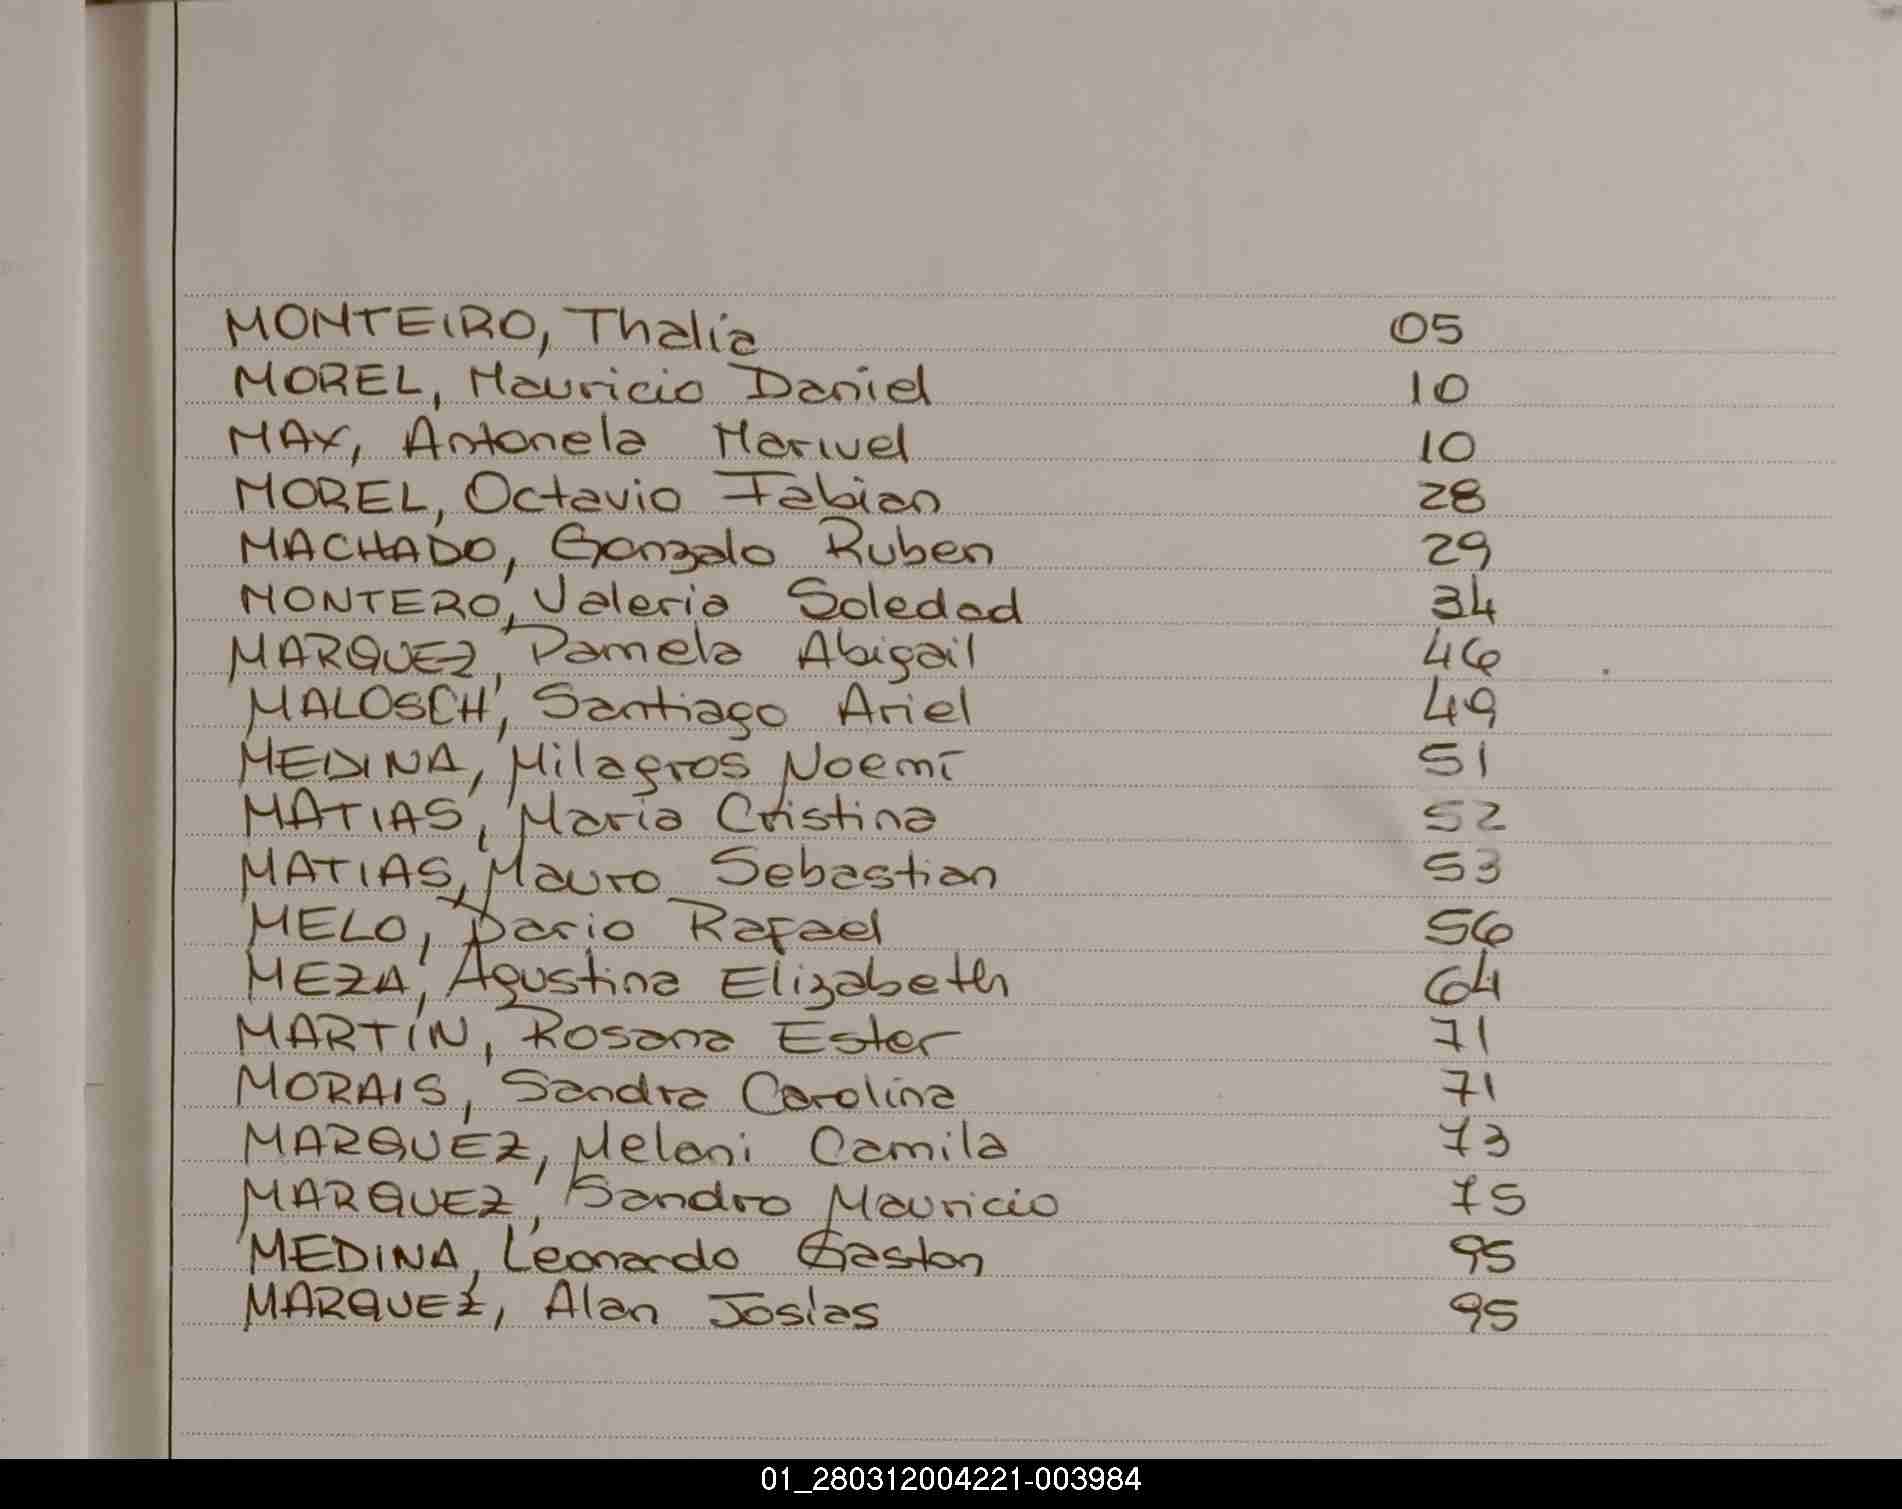 MONTEIRO, Thalia 05
MOREL, Mauricio Daniel 10
MAX, Antonela Marivel 10
MOREL, Octavio Fabian 28
MACHADO, Gonzalo Ruben 29
MONTERO, Valeria Soledad 34
MARQUEZ, Pamela Abigail 46
MALOSCH, Santiago Ariel 49
MEDINA, Milagros Noemí 51
MATIAS, María Cristina 52
MATIAS, Mauro Sebastian 53
MELO, Dario Rafael 56
MEZA, Agustina Elizabeth 64
MARTÍN, Rosana Ester 71
MORAIS, Sandra Carolina 71
MARQUEZ, Melani Camila 73
MARQUEZ, Sandro Mauricio 75
MEDINA, Leonardo Gaston 95
MARQUEZ, Alan Josías 95
01_280312004221-003984